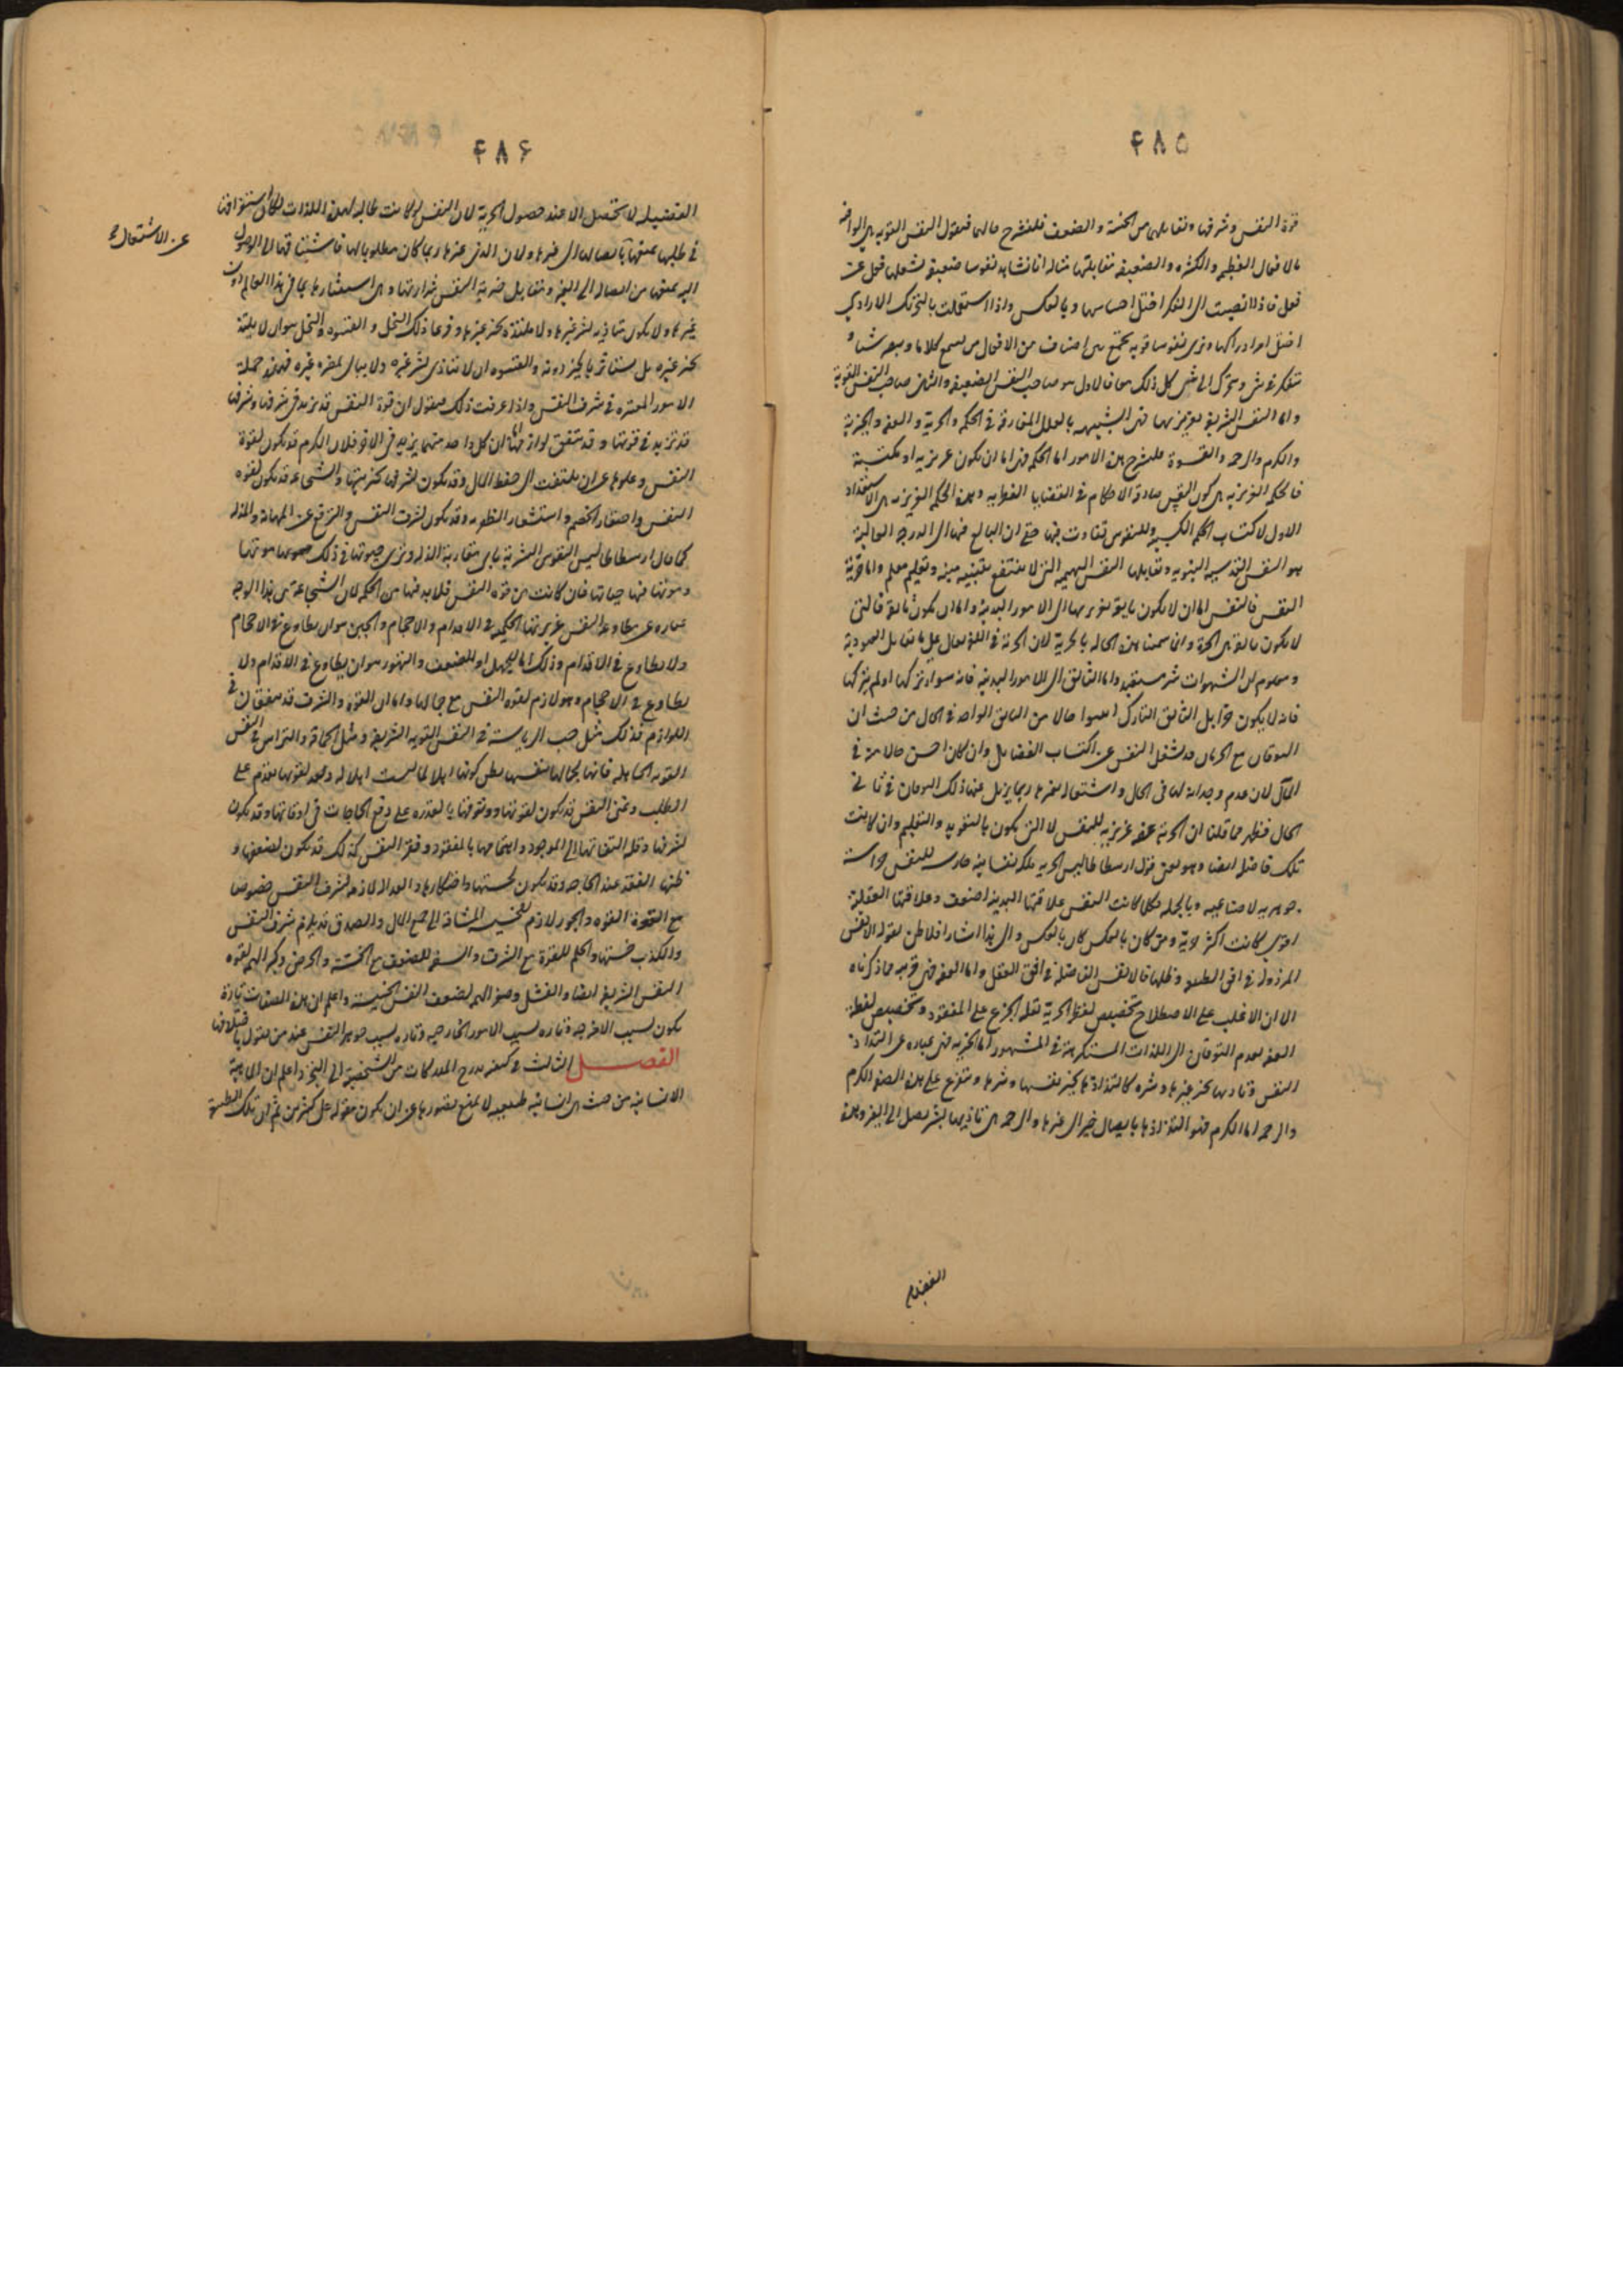 ۴۸۵
قوة النفس وشرفها وتقابلهما من الخسة والضعف فلنشرح حالهما فنقول النفس القوية هي الوافية
بالافعال العظيمة والكثيرة والضعيفة تقابلها مثاله انا نشاهد نفوسا ضعيفة لشغلها فعل عن
فعل فاذا انصبت الى الفكر اختل احساسها وبالعكس واذا اشتغلت بالتحريك الارادي
اختل امر ادراكها ونرى نفوسا قوية تجمع بين اصناف من الافعال من يسمع كلاما ويبصر شيئا و
يتفكر في شيء ويحرك الى شيء كل ذلك معا فالاول هو صاحب النفس الضعيفة والثاني صاحب النفس القوية
واما النفس الشريفة بغريزتها فهي الشبيهة بالعلل المفارقة في الحكمة والحرية والعفة والخيرية
والكرم والرحمة والقسوة فلنشرح هذه الامور اما الحكمة فهي اما ان يكون غريزية او مكتسبة
فالحكمة الغريزية هي كون النفس صادقة الاحكام في القضايا الفطرية وهذه الحكمة الغريزية هي الاستعداد
الاول لاكتساب الحكمة الكسبية وللنفوس تفاوت فيها حتى ان البالغ فيها الى الدرجة العالية
هو النفس القدسية النبوية وتقابلها النفس البهيمة التي لا ينتفع بتنبيه منبه وتعليم معلم واما حرية
النفس فالنفس اما ان لا يكون تايقة بغريزتها الى الامور البدنية واما ان يكون تايقة فالتي
لا يكون تايقة هي الحرة وانما سمينا هذه الحالة بالحرية لان الحرية في اللغة يقال على ما يقابل العبودية
ومعلوم ان الشهوات شر مستعبد واما التايق الى الامور البدنية فانه سواء تركها او لم يتركها
فانه لا يكون حرا بل التايق التارك اسوأ حالا من التايق الواجد في الحال من حيث ان
التوقان مع الحرمان قد يشغل النفس عن اكتساب الفضايل وان كان احسن حالا منه في
المآل لان عدم وجدانه لها في الحال واشتغاله بغيرها ربما يزيل عنها ذلك التوقان في ثاني
الحال فظهر مما قلنا ان الحرية عفة غريزية للنفس لا التي يكون بالتعويد والتعليم وان كانت
تلك فاضلة ايضا وهو معنى قول ارسطاطاليس الحرية ملكة نفسانية حارسة للنفس حراسة
جوهرية لا صناعية وبالجملة فكلما كانت النفس علاقتها البدنية اضعف وعلاقتها العقلية
اقوى كانت اكثر حرية ومن كان بالعكس كان بالعكس والى هذا اشار افلاطن بقوله الانفس
المرذولة في افق الطبيعة وظلها والانفس الفاضلة في افق العقل واما العفة فهي قريبة مما ذكرناه
الا ان الاغلب على الاصطلاح تخصيص لفظ الحرية بقلة الجزع على المفقود وتخصيص لفظ
العفة بعدم التوقان الى اللذات المستكرهة في المشهور اما الخيرية فهي عبارة عن التذاذ
النفس وتأذيها بخير غيرها وشره كالتذاذها بخير نفسها وشرها ويتفرع على هذه الصفة الكرم
والرحمة اما الكرم فهو التذاذها بايصال خير الى غيرها والرحمة هي تأذيها بشر يصل الى الغير وهذه
الفضيلة
۴۸۶
الفضيلة لا تحصل الا عند حصول الحرية لان النفس لو كانت طالبة لهذه اللذات لكان استغراقها
في طلبها يمنعها عن ايصالها الى غيرها ولان الذي عند غيرها ربما كان مطلوبا لها فاشتياقها الى الوصول
اليه يمنعها من ايصاله الى الغير وتقابل خيرية النفس شرارتها وهي استشارها بما في هذا العالم دون
غيرها ولا يكون متأذية لشر غيرها ولا ملتذة بخير غيرها وفرعا ذلك البخل والقسوة والبخل هو ان لا يلتذ
بخير غيره بل يستأثر بالخير دونه والقسوة ان لا يتأذى لشر غيره ولا يبالي بمضرة غيره فهذه جملة
الامور المعتبرة في شرف النفس واذا عرفت ذلك فنقول ان قوة النفس قد تزيد في شرفها وشرفها
قد تزيد في قوتها وقد يتفق لوازمهما ان كل واحد منهما يزيد في الاخر فلان الكرم قد يكون لقوة
النفس وعلوها عن ان يلتفت الى حفظ المال وقد يكون لشرفها كخيريتها والشجاعة قد يكون لقوة
النفس واحتقار الخصم واستشعار الظفر به وقد يكون لشرف النفس والترفع عن المهانة والمذلة
كما قال ارسطاطاليس النفوس الشريفة تأبى مقاربة الذلة وترى حيوتها في ذلك موتها
وموتها فيها حياتها فان كانت من قوة النفس فلا بد فيها من الحكمة لان الشجاعة من هذا الوجه
عبارة عن مطاوعة النفس غريزتها الحكيمة في الاقدام والاحجام والجبن هو ان يطاوع في الاحجام
ولا يطاوع في الاقدام وذلك اما للجهل او للضعف والتهور هو ان يطاوع في الاقدام ولا
يطاوع في الاحجام وهو لازم لقوة النفس مع جهالتها واما ان القوة والشرف قد يتفقان في
اللوازم فذلك مثل حب الرياسة في النفس القوية الشريفة ومثل الحماقة والتراس في النفس
القوية الجاهلة فانها بجهالتها بنفسها يظن كونها اهلا لما ليست اهلا له وبعد لقوتها يقدم على
الطلب وغنى النفس قد يكون لقوتها ووثوقها بالقدرة على دفع الحاجات في اوقاتها وقد يكون
لشرفها وقلة التفاتها الى الموجود واهتمامها بالمفقود وفقر النفس كذلك قد يكون لضعفها و
ظنها الفقد عند الحاجة وقد يكون لخستها واحتكارها والعدالة لازمة لشرف النفس خصوصا
مع القوة والجور لازم للخسة المشتاقة الى جمع المال والصدق قد يلزم شرف النفس
والكذب خستها والحلم للقوة مع الشرف والسفه للضعف مع الخسة والحرص وكبر الهمة لقوة
النفس الشريفة ايضا والفشل وصغر الهمة لضعف النفس الخسيسة واعلم ان هذه الصفات تارة
يكون لسبب الامزجة وتارة بسبب الامور الخارجية وتارة بسبب جوهر النفس عند من يقول باختلافها
الفصل الثالث في كيفية تدرج المدركات من الشخصية الى التجرد اعلم ان الماهية
الانسانية من حيث هي انسانية طبيعية لا يمنع تصورها عن ان يكون مقولة على كثيرين ثم ان تلك الطبيعة
عن الاشتغال